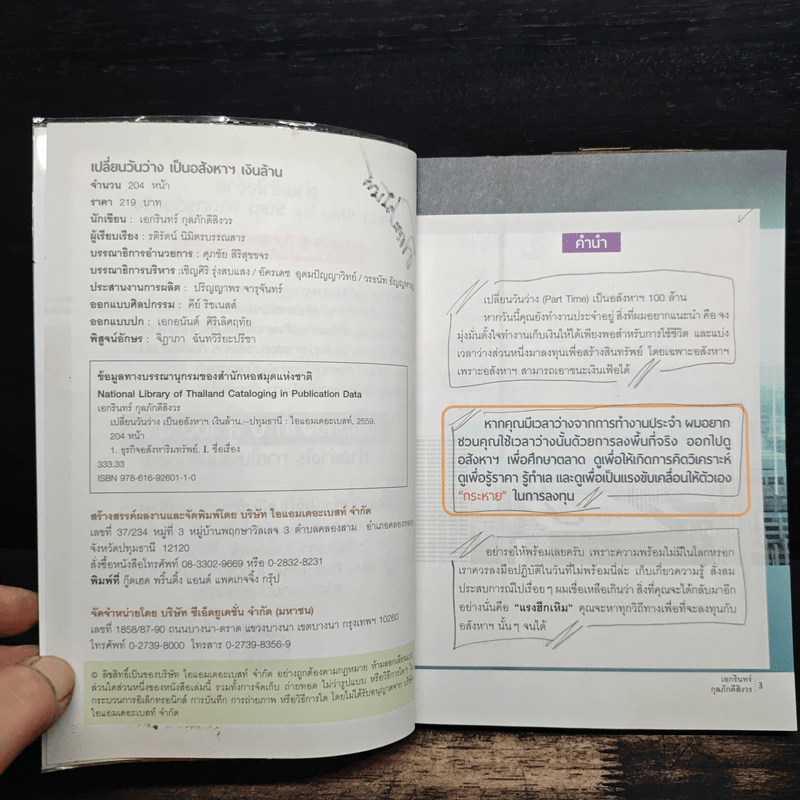 เปลี่ยนวันว่าง เป็นอสังหาฯ เงินล้าน
จำนวน 204 หน้า
ราคา 219 บาท
นักเขียน : เอกรินทร์ กุลภักดีสิงวร
ผู้เรียบเรียง : รติรัตน์ นิมิตรบรรณสาร
บรรณาธิการอำนวยการ : ศุภชัย สิริสุขขจร
บรรณาธิการบริหาร : เชิญศิริ รุ่งสบแสง / อัครเดช อุดมปัญญาวิทย์ / วรธนัท
ประสานงานการผลิต : ปริญญาพร จารุจันทร์
ออกแบบศิลปกรรม : คีย์ ริชเนสส์
ออกแบบปก : เอกอนันต์ ศิริเลิศฤทัย
พิสูจน์อักษร : จิฏาภา ฉันทวิริยะปรีชา
ข้อมูลทางบรรณานุกรมของสำนักหอสมุดแห่งชาติ
National Library of Thailand Cataloging in Publication Data
เอกรินทร์ กุลภักดีสิงวร
เปลี่ยนวันว่าง เป็นอสังหาฯ เงินล้าน.--ปทุมธานี : ไอแอมเดอะเบสท์, 2559.
204 หน้า
1. ธุรกิจอสังหาริมทรัพย์. I. ชื่อเรื่อง
333.33
ISBN 978-616-92601-1-0
สร้างสรรค์ผลงานและจัดพิมพ์โดย บริษัท ไอแอมเดอะเบสท์ จำกัด
เลขที่ 37/234 หมู่ที่ 3 หมู่บ้านพฤกษาวิลเลจ 3 ตำบลคลองสาม อำเภอคลองหลวง
จังหวัดปทุมธานี 12120
สั่งซื้อหนังสือโทรศัพท์ 08-3302-9669 หรือ 0-2832-8231
พิมพ์ที่ กู๊ดเฮด พริ้นติ้ง แอนด์ แพคเกจจิ้ง กรุ๊ป
จัดจำหน่ายโดย บริษัท ซีเอ็ดยูเคชั่น จำกัด (มหาชน)
เลขที่ 1858/87-90 ถนนบางนา-ตราด แขวงบางนา เขตบางนา กรุงเทพฯ 10260
โทรศัพท์ 0-2739-8000 โทรสาร 0-2739-8356-9
© ลิขสิทธิ์เป็นของบริษัท ไอแอมเดอะเบสท์ จำกัด อย่างถูกต้องตามกฎหมาย ห้ามลอกเลียน
ส่วนใดส่วนหนึ่งของหนังสือเล่มนี้ รวมทั้งการจัดเก็บ ถ่ายทอด ไม่ว่ารูปแบบ หรือวิธีการใดๆ
กระบวนการอิเล็กทรอนิกส์ การบันทึก การถ่ายภาพ หรือวิธีการใด โดยไม่ได้รับอนุญาตจาก
ไอแอมเดอะเบสท์ จำกัด
คำนำ
เปลี่ยนวันว่าง (Part Time) เป็นอสังหาฯ 100 ล้าน
หากวันนี้คุณยังทำงานประจำอยู่ สิ่งที่ผมอยากแนะนำ คือ จง
มุ่งมั่นตั้งใจทำงานเก็บเงินให้ได้เพียงพอสำหรับการใช้ชีวิต และแบ่ง
เวลาว่างส่วนหนึ่งมาลงทุนเพื่อสร้างสินทรัพย์ โดยเฉพาะอสังหาฯ
เพราะอสังหาฯ สามารถเอาชนะเงินเฟ้อได้
หากคุณมีเวลาว่างจากการทำงานประจำ ผมอยาก
ชวนคุณใช้เวลาว่างนั้นด้วยการลงพื้นที่จริง ออกไปดู
อสังหาฯ เพื่อศึกษาตลาด ดูเพื่อให้เกิดการคิดวิเคราะห์
ดูเพื่อรู้ราคา รู้ทำเล และดูเพื่อเป็นแรงขับเคลื่อนให้ตัวเอง
“กระหาย” ในการลงทุน
อย่ารอให้พร้อมเลยครับ เพราะความพร้อมไม่มีในโลกหรอก
เราควรลงมือปฏิบัติในวันที่ไม่พร้อมนี่ล่ะ เก็บเกี่ยวความรู้ สั่งสม
ประสบการณ์ไปเรื่อยๆ ผมเชื่อเหลือเกินว่า สิ่งที่คุณจะได้กลับมาอีก
อย่างนั่นคือ “แรงฮึกเหิม” คุณจะหาทุกวิถีทางเพื่อที่จะลงทุนกับ
อสังหาฯ นั้นๆ จนได้
เอกรินทร์
กุลภักดีสิงวร 3